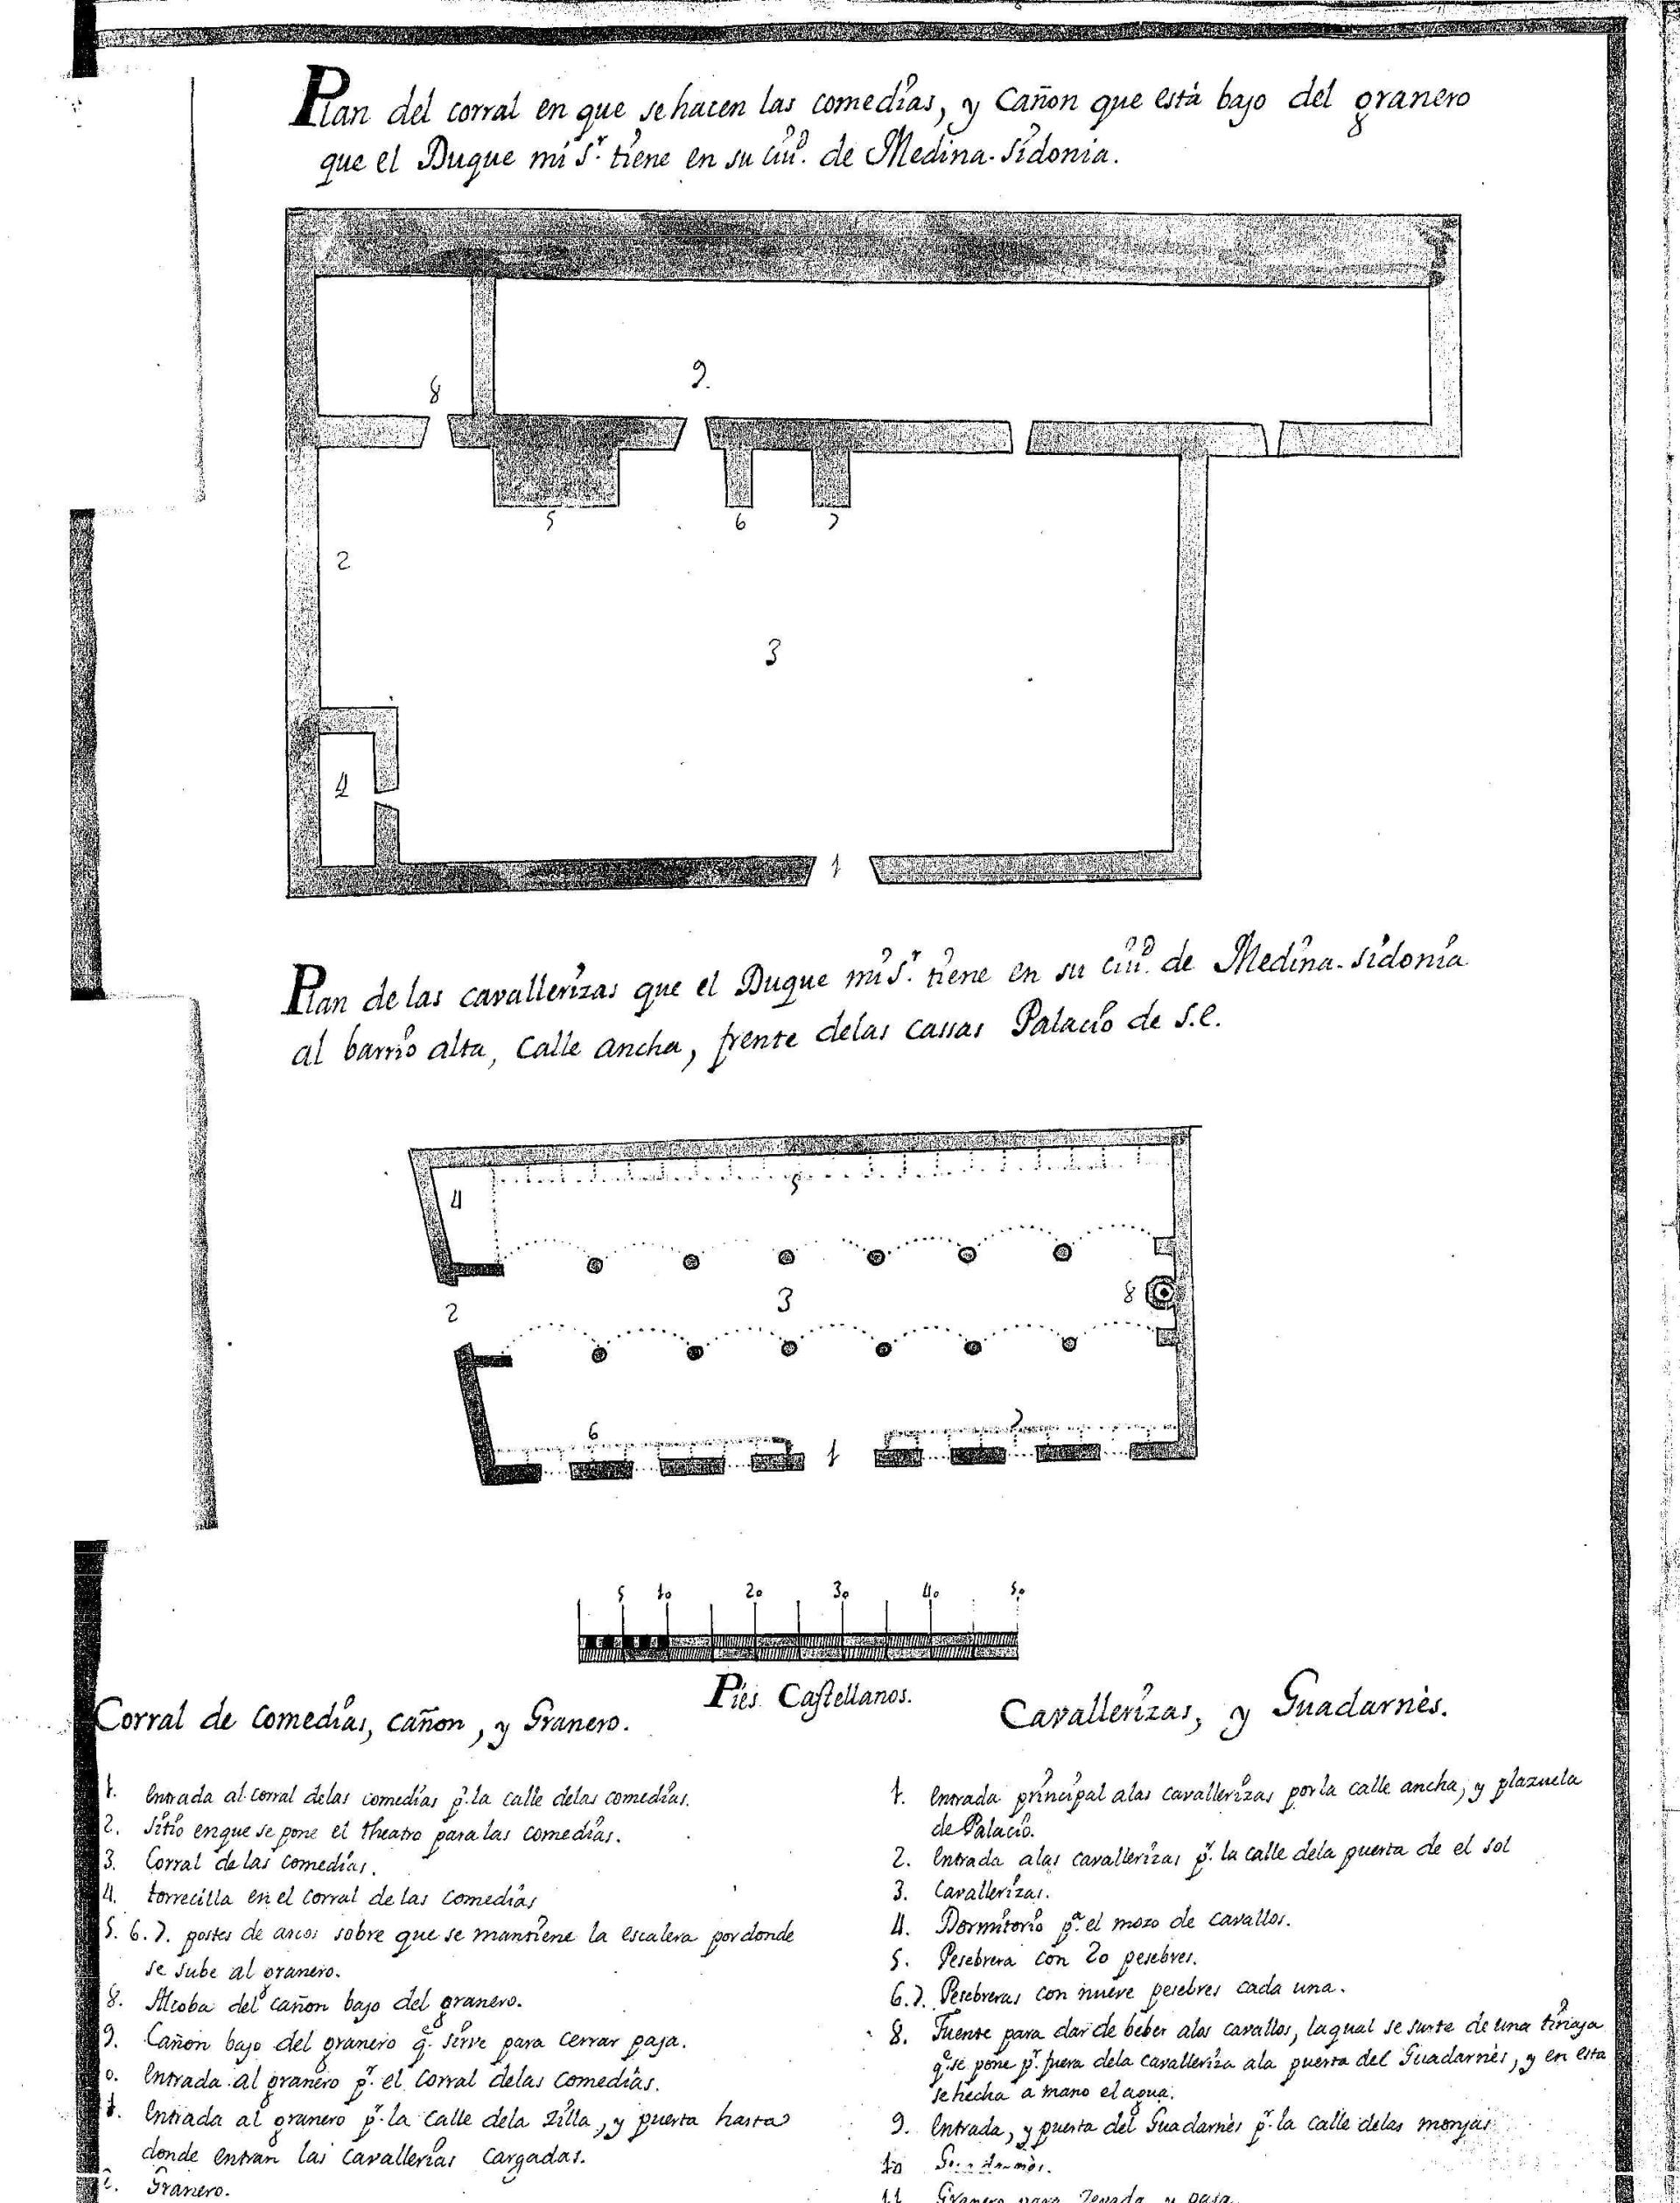 Plan del corral en que se hacen las comedias, y Cañon que està bajo del granero
que el Duque mi Sr. tiene en su ciud. de Medina-Sidonia.
8
9.
5
6
7
2
3
4
1
Plan de las cavallerizas que el Duque mi Sr. tiene en su ciud. de Medina-Sidonia
al barrio alta, Calle ancha, frente delas cassas Palacio de S.E.
4
5
2
3
8
6
7
1
5 10 20 30 40 50
Pies Castellanos.
Corral de comedias, cañon, y Granero.
1. Entrada al corral delas comedias pr. la calle delas comedias.
2. Sitio enque se pone el theatro para las comedias.
3. Corral de las comedias.
4. torrecilla en el corral de las comedias
5. 6. 7. postes de arcos sobre que se mantiene la escalera por donde
se sube al granero.
8. Alcoba del cañon bajo del granero.
9. Cañon bajo del granero qe. sirve para cerrar paja.
0. Entrada al granero pr. el Corral delas comedias.
1. Entrada al granero pr. la calle dela Zilla, y puerta hasta
donde entran las cavallerias cargadas.
2. Granero.
Cavallerizas, y Guadarnès.
1. Entrada principal a las cavallerizas por la calle ancha, y plazuela
de Palacio.
2. Entrada alas cavallerizas pr. la calle dela puerta de el sol
3. Cavallerizas.
4. Dormitorio pa. el mozo de cavallos.
5. Pesebrera con 20 pesebres.
6. 7. Pesebreras con nueve pesebres cada una.
8. Fuente para dar de beber alos cavallos, laqual se surte de una tinaja
qe. se pone pr. fuera dela cavalleriza ala puerta del Guadarnès, y en esta
se hecha a mano el agua.
9. Entrada, y puerta del Guadarnès pr. la calle delas monjas
10 Guadarnès.
11 Granero para Zevada, y paja